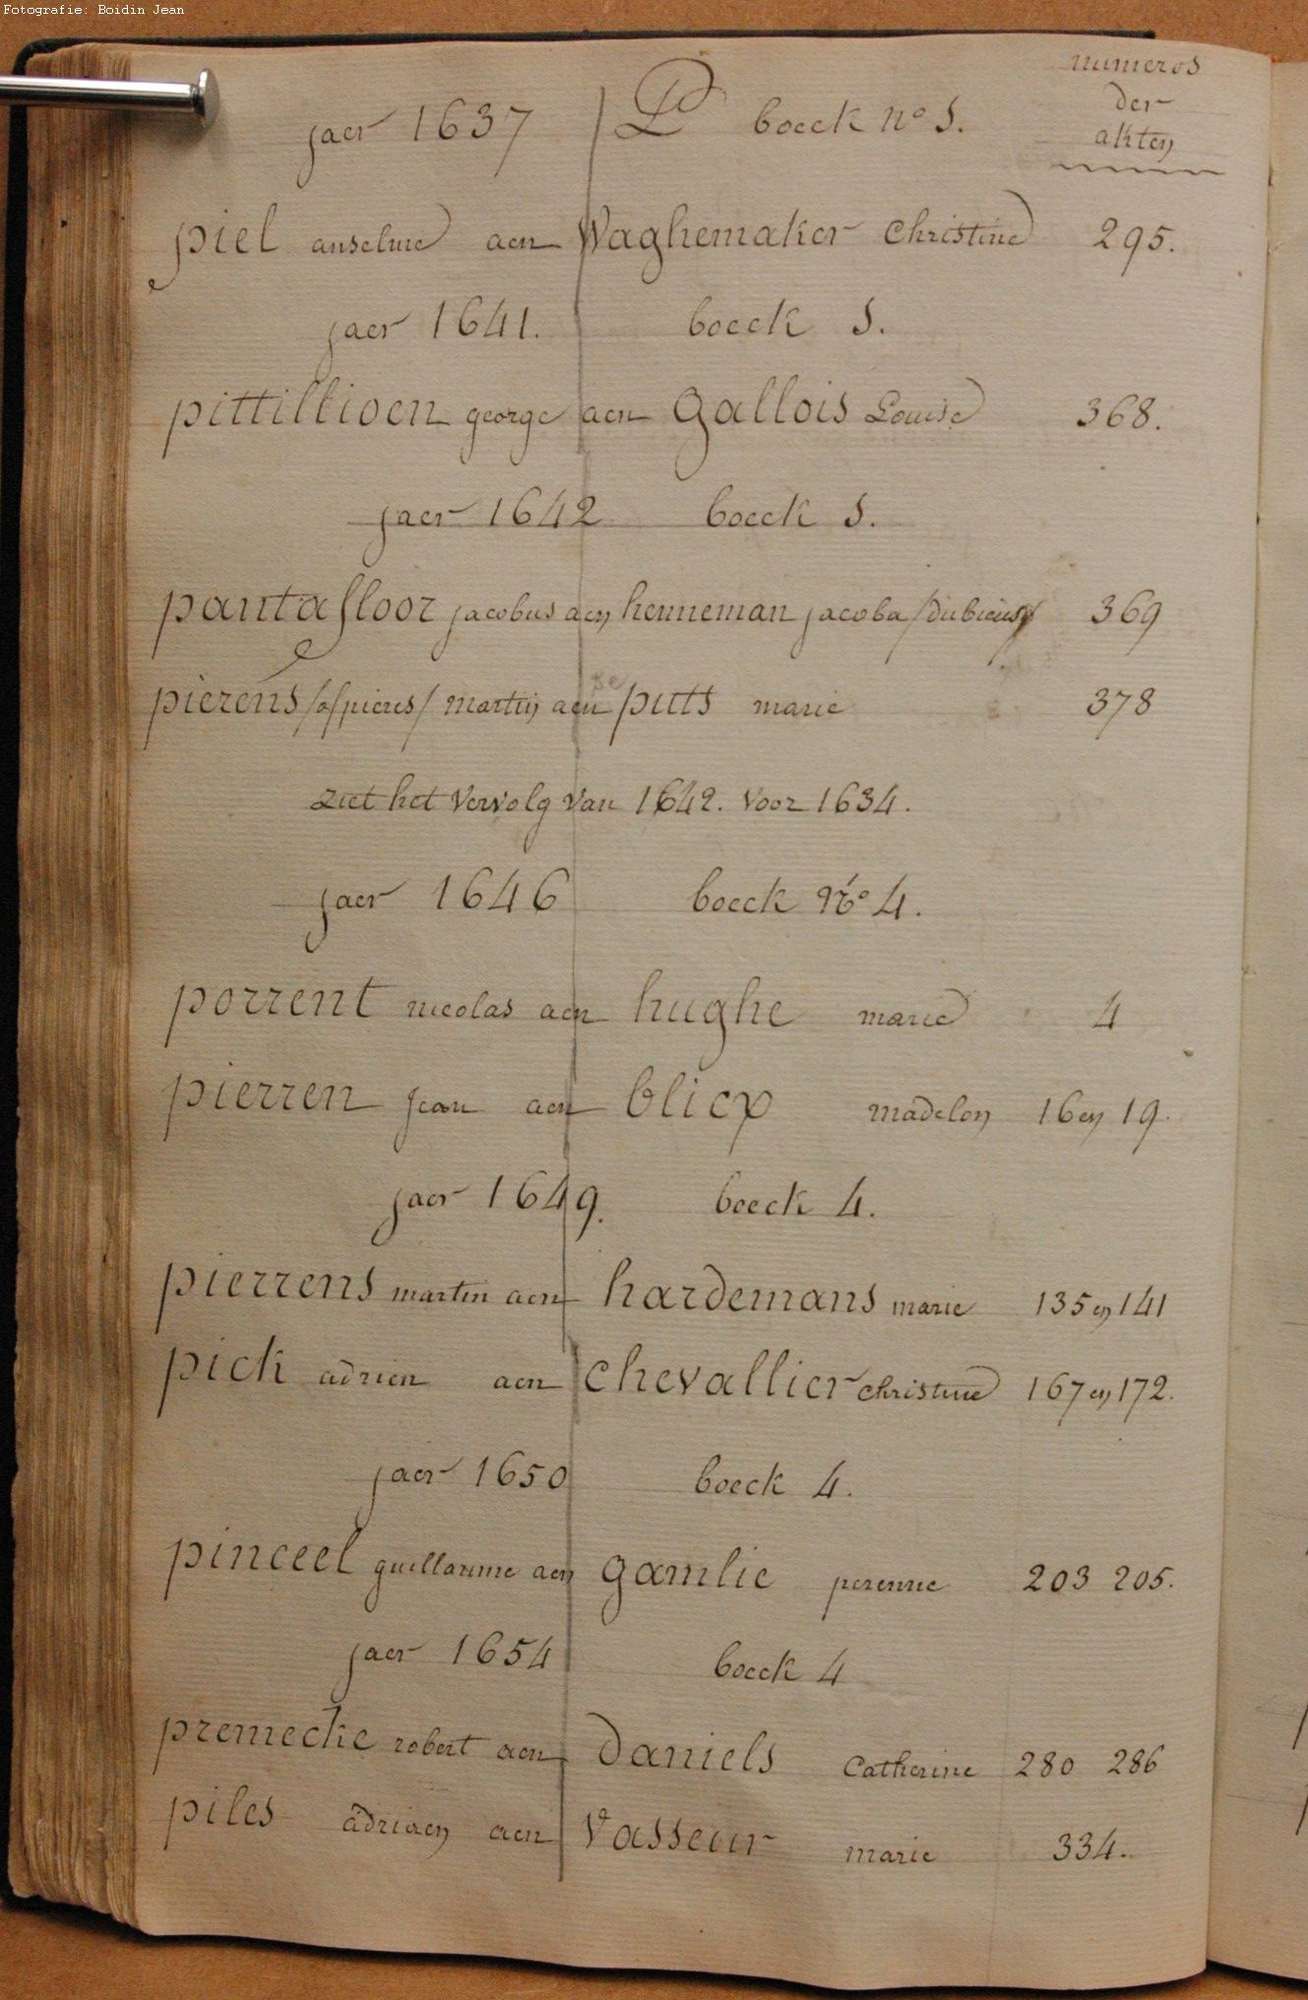 Fotografie: Boidin Jean
numeros
der
akten
jaer 1637 P boeck no 5.
piel anselme aen Waghemaker Christine 295.
jaer 1641. boeck 5.
pittillioen george aen gallois Louise 368.
jaer 1642 boeck 5.
pantafloor jacobus aen henneman jacoba /dubieus/ 369
pierens /of pieres/ martin aen puts marie 378
ziet het vervolg van 1642. voor 1634.
jaer 1646 boeck No 4.
porrent nicolas aen hughe marie 4
pierren Jean aen blicx madelon 16 en 19.
jaer 1649. boeck 4.
pierrens martin aen hardemans marie 135 en 141
pick adrien aen chevallier christine 167 en 172.
jaer 1650 boeck 4.
pinceel guillaume aen gamlie perenne 203 205.
jaer 1654 boeck 4
premecke robert aen daniels Catherine 280 286
piles adriaen aen vasseur marie 334.